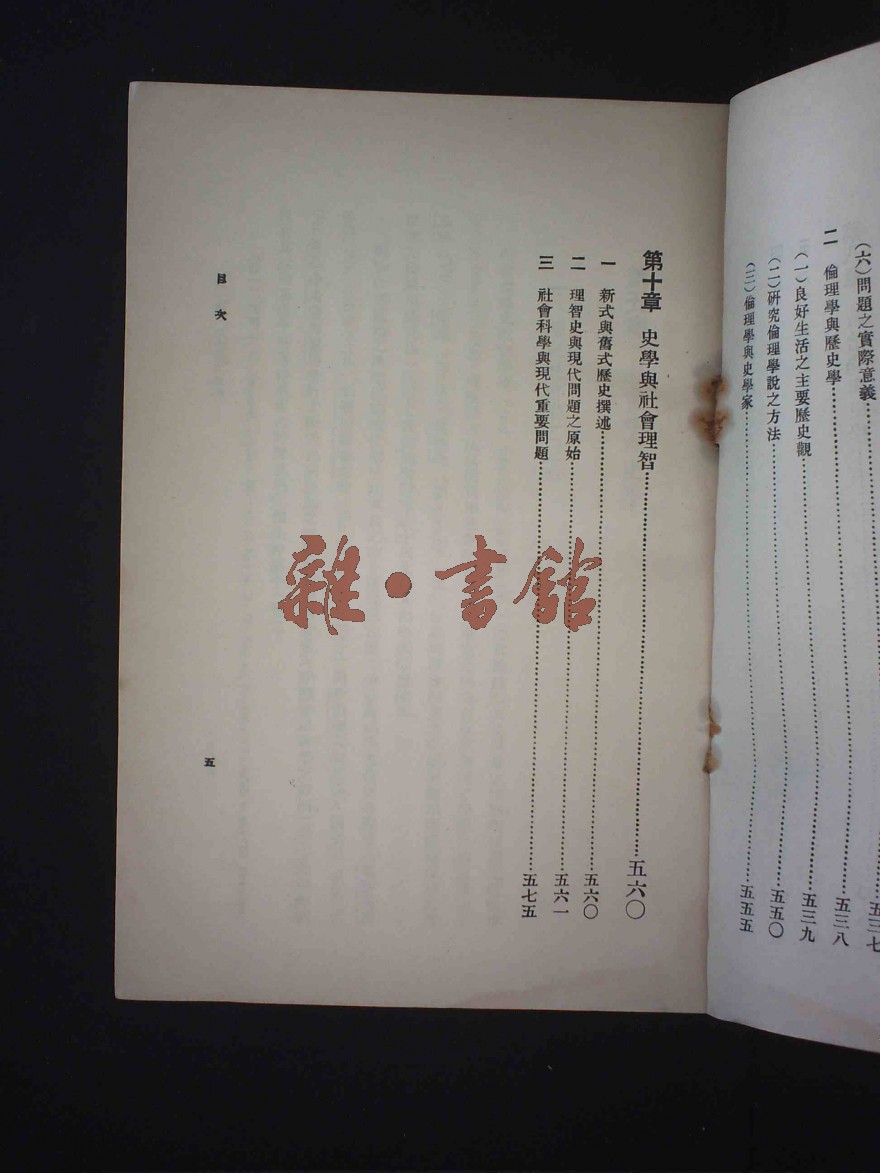 (六)問題之實際意義……五三七
二 倫理學與歷史學……五三八
(一)良好生活之主要歷史觀……五三九
(二)研究倫理學說之方法……五五〇
(三)倫理學與史學家……五五五
第十章 史學與社會理智……五六〇
一 新式與舊式歷史撰述……五六〇
二 理智史與現代問題之原始……五六一
三 社會科學與現代重要問題……五七五
目次
五
雜·書館